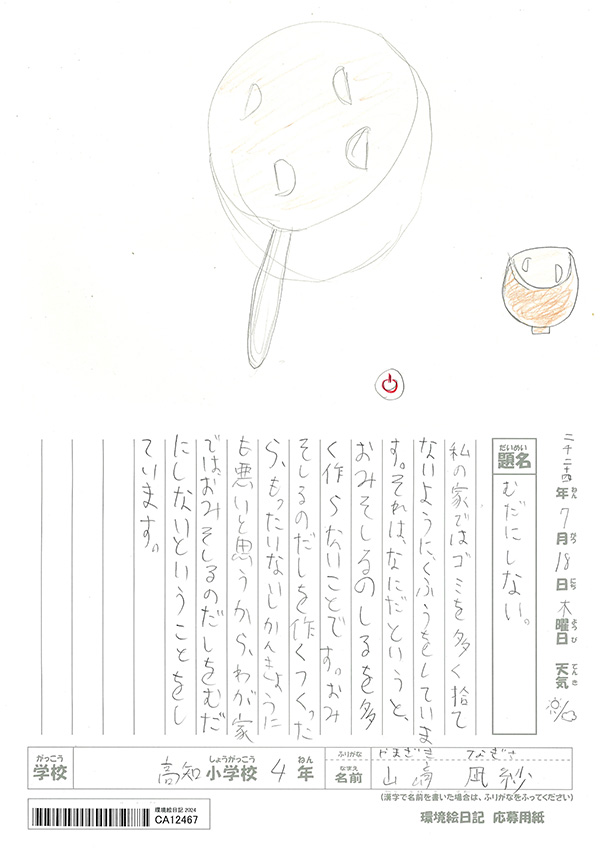 二千二十四年ねん 7月がつ 18日にち 木曜日ようび 天気てんき
だいめい
題名
むだにしない。
私の家ではゴミを多く捨て
ないように、くふうをしていま
す。それは、なにだというと、
おみそしるのしるを多
く作らないことです。おみ
そしるのだしを作くつくった
ら、もったいないしかんきょうに
も悪いと思うから、わが家
では、おみそしるのだしをむだ
にしないということをし
ています。
がっこう しょうがっこう ねん ふりがな やまさき なぎさ
学校 高知小学校 4年 なまえ 名前 山﨑 凪紗
(漢字で名前を書いた場合は、ふりがなをふってください)
環境絵日記 2024
CA12467
環境絵日記 応募用紙